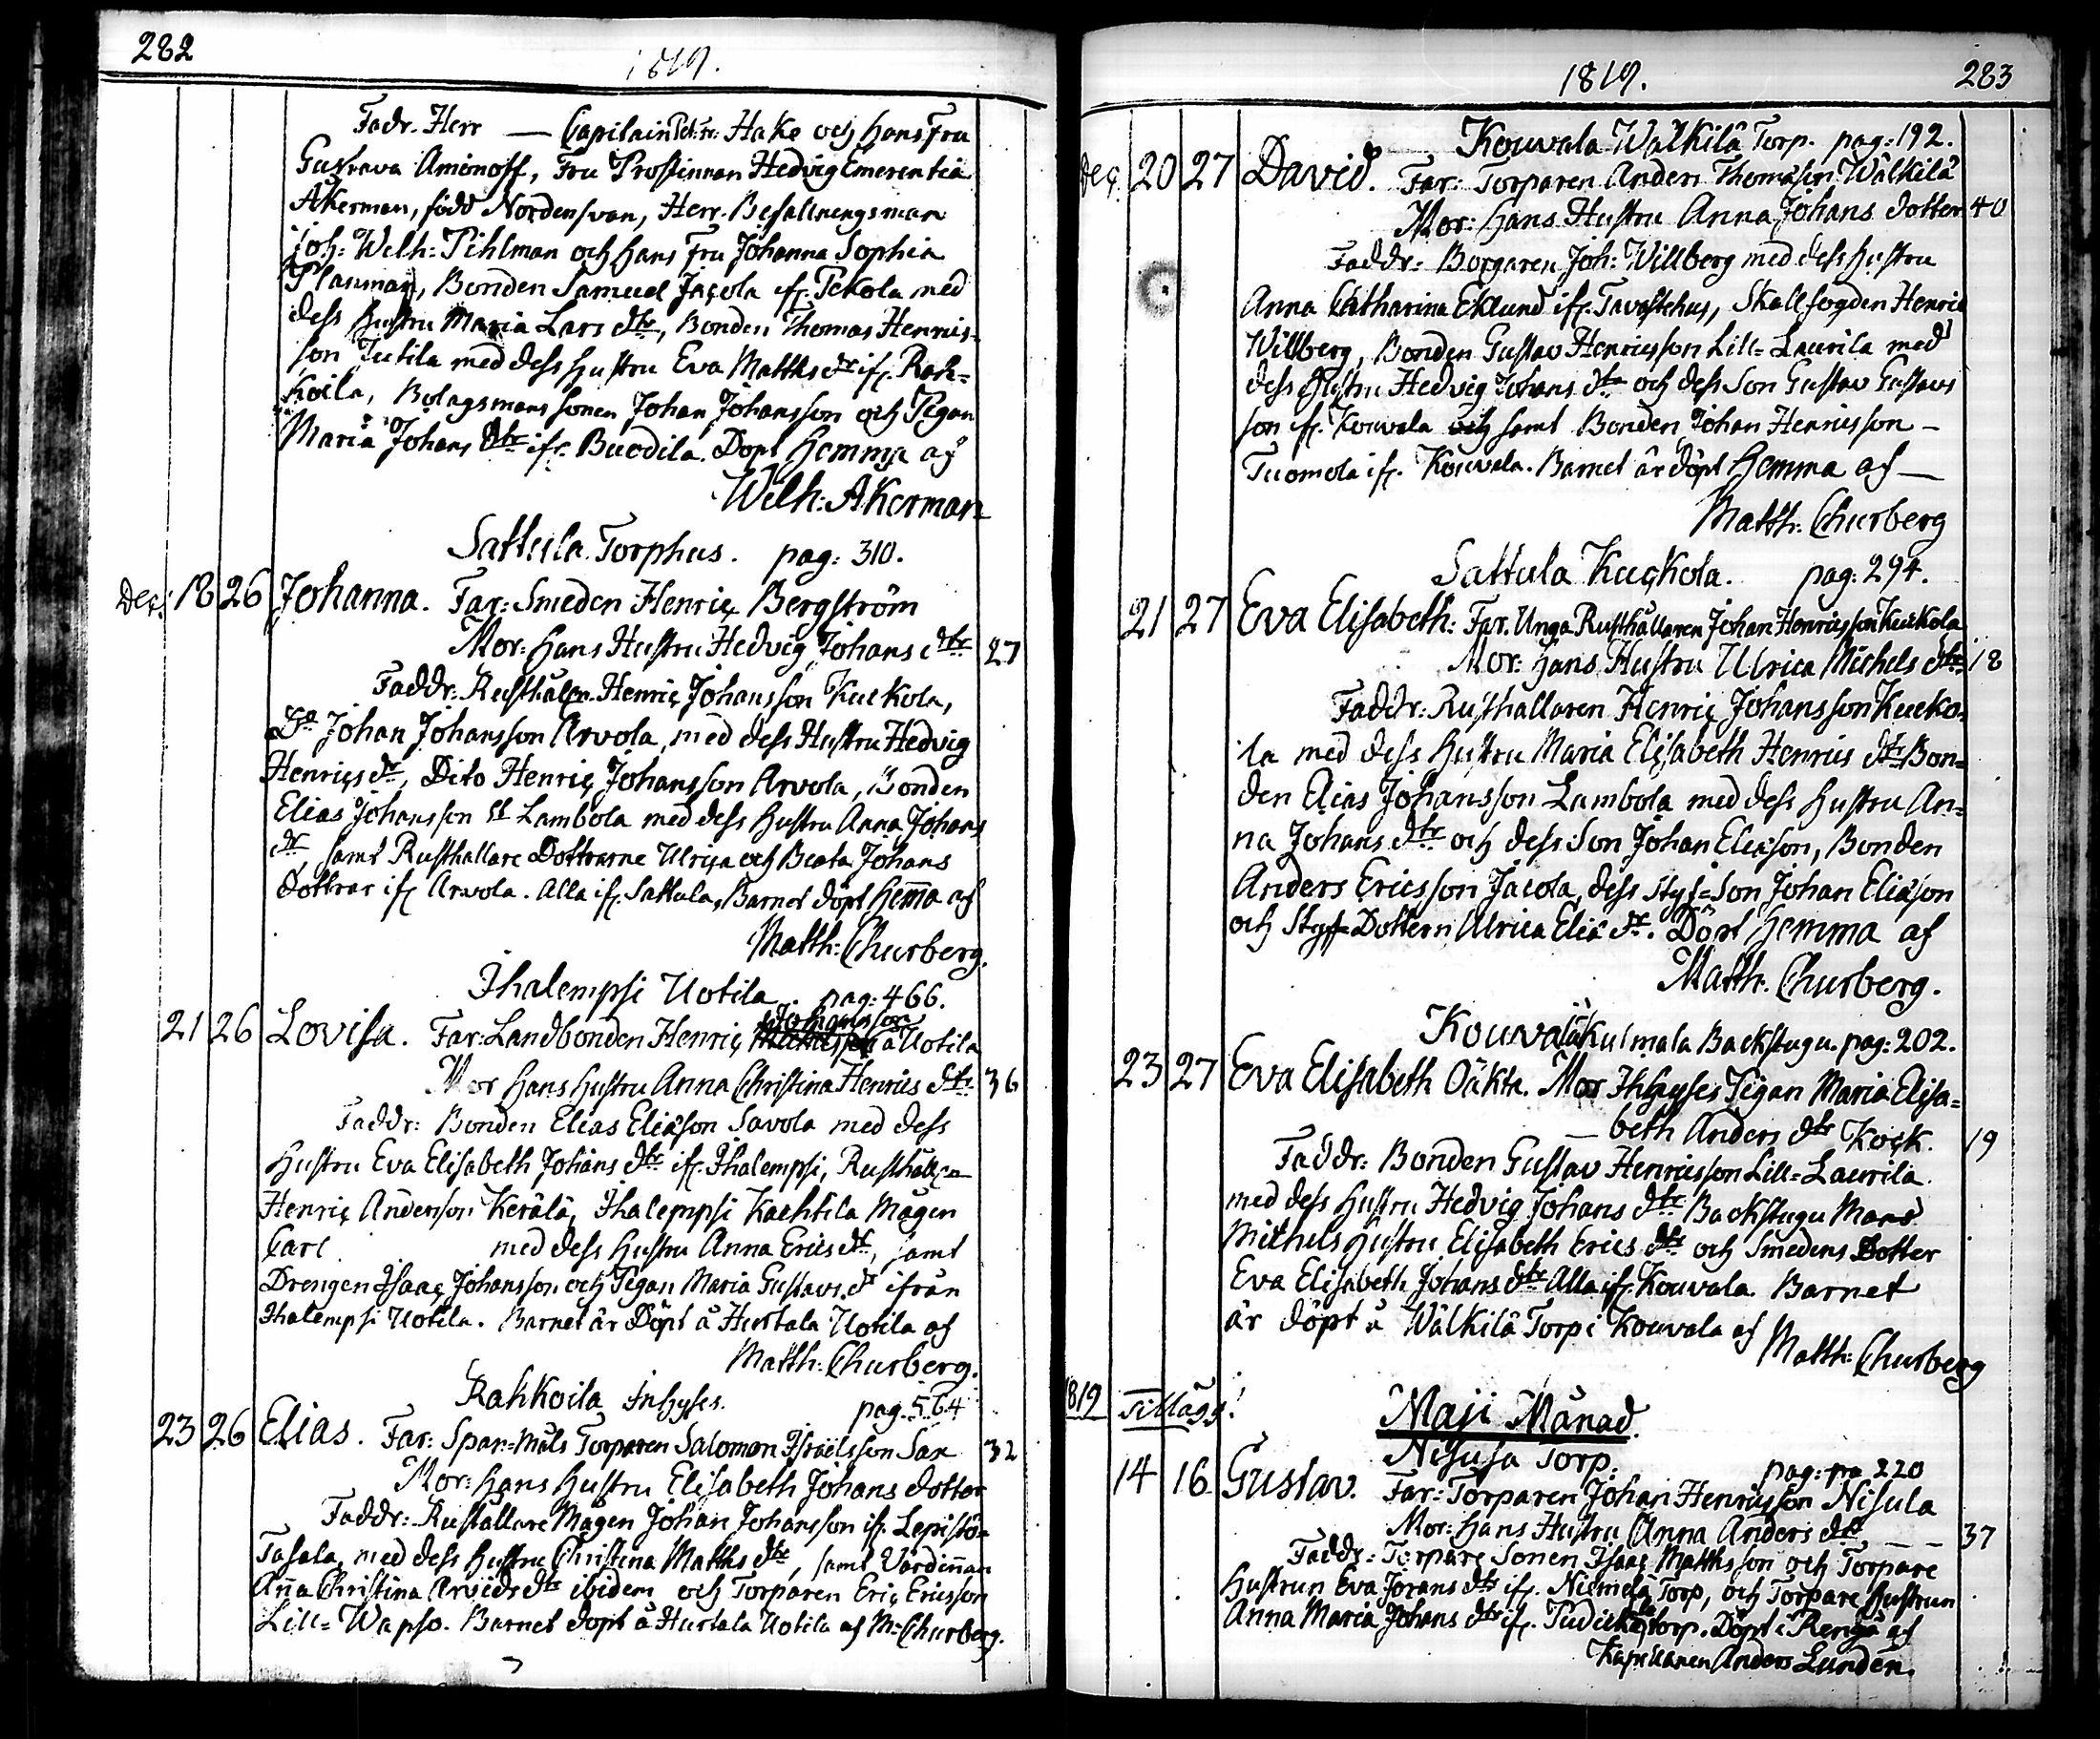 282
1819.
Fadr. Herr — Capitain Pet: Fr: Hake och hans Fru
Gustava Aminoff, Fru Prostinnan Hedvig Emerentia
Åkerman, född Nordensvan, Herr Befallningsman
Joh: Welh: Pihlman och hans Fru Johanna Sophia
Planman, Bonden Samuel Jacola ifr. Pekola med
dess Hustru Maria Lars dtr, Bonden Thomas Henrics-
son Jutila med dess hustru Eva Matths dr ifr. Rah-
koila, Bolagsmans sonen Johan Johansson och Pigan
Maria Johans dtr ifr. Buodila. Döpt hemma af
Wilh: Åkerman
Sattula Torphus. pag: 310.
Dec: 18 26 Johanna. Far: Smeden Henric Bergström
Mor: hans Hustru Hedvig Johans dtr 27
Faddr: Rusthåll:n Henric Johansson Kuckola,
Do Johan Johansson Arvola, med dess Hustru Hedvig
Henrics dr, Dito Henric Johansson Arvola, Bonden
Elias Johansson Lambola med dess hustru Anna Johans
dr, samt Rusthållare Döttrarne Ulrica och Beata Johans
döttrar ifr. Arvola. Alla ifr. Sattula, Barnet döpt hemma af
Matth: Churberg.
Ihalempsi Uotila. pag: 466.
21 26 Lovisa. Far: Landbonden Henric Johansson å Uotila
Mor hans hustru Anna Christina Henrics dtr 36
Faddr: Bonden Elias Eliäson Savola med dess
hustru Eva Elisabeth Johans dtr ifr. Ihalempsi, Rusthåll:n
Henric Anderson Kerälä, Ihalempsi Kaehtila Mågen
Carl med dess hustru Anna Erics dr, samt
Drengen Isaac Johansson och Pigan Maria Gustavs dr ifrån
Ihalempsi Uotila. Barnet är Döpt å Hurtala Uotila af
Matth: Churberg.
Rahkoila Inhyses. pag. 564
23 26 Elias. Far: Span-måls Torparen Salomon Israëlsson Sax 32
Mor: hans hustru Elisabeth Johans dotter
Faddr: Rusthållare Mågen Johan Johansson ifr. Lepistö-
Tasala, med dess hustru Christina Matths dtr, samt Värdinnan
Anna Christina Arvids dtr ibidem och Torparen Eric Ericsson
Lill-Wapso. Barnet döpt å Hurtala Uotila af M: Churberg.
1819.
283
Kouvala Wälkilä Torp. pag: 192.
Dec. 20 27 David. Far: Torparen Anders Thomasson Wälkilä
Mor: hans Hustru Anna Johans dotter 40
Faddr: Borgaren Joh: Willberg med dess hustru
Anna Catharina Eklund ifr. Tavastehus, Skallfogden Henric
Willberg, Bonden Gustav Henricsson Lill-Laurila med
dess Hustru Hedvig Johans dtr och dess Son Gustav Gustavs
son ifr. Kouvala och samt Bonden Johan Henricsson —
Tuomola ifr. Kouvala. Barnet är döpt hemma af —
Matth: Churberg
Sattula Kuckola. pag: 294.
21 27 Eva Elisabeth. Far. Unga Rusthållaren Johan Henricsson Kuckola
Mor: hans Hustru Ulrica Michels dtr 18
Faddr: Rusthållaren Henric Johansson Kucko-
la med dess hustru Maria Elisabeth Henrics dtr Bon-
den Elias Johansson Lambola med dess hustru An-
na Johans dtr och dess Son Johan Eliäson, Bonden
Anders Ericsson Jacola, dess Styf-Son Johan Eliäson
och Styf-Dottern Ulrica Eliä dr. Döpt hemma af
Matth. Churberg.
Kouvala Kulmala Backstugu. pag: 202.
23 27 Eva Elisabeth Oäkta. Mor Inhyses Pigan Maria Elisa-
beth Anders dtr Kock. 19
Faddr: Bonden Gustav Henricsson Lill-Laurila
med dess hustru Hedvig Johans dtr Backstugu Mans
Michels hustru Elisabeth Erics dtr och Smedens Dotter
Eva Elisabeth Johans dtr Alla ifr. Kouvala. Barnet
är döpt å Wälkilä Torp i Kouvala af
Matth: Churberg
1819 Tillägg:
Maji Månad.
Nisula Torp. pag: 220
14 16 Gustav. Far: Torparen Johan Henricsson Nisula
Mor: hans Hustru Anna Anders dtr — — 37
Faddr: Torpare Sonen Isaac Matthsson och Torpare
hustrun Eva Jörans dtr ifr. Niemelä Torp, och Torpare hustrun
Anna Maria Johans dtr ifr. torp. Döpt i Renga af
Kapellanen Anders Lunden.